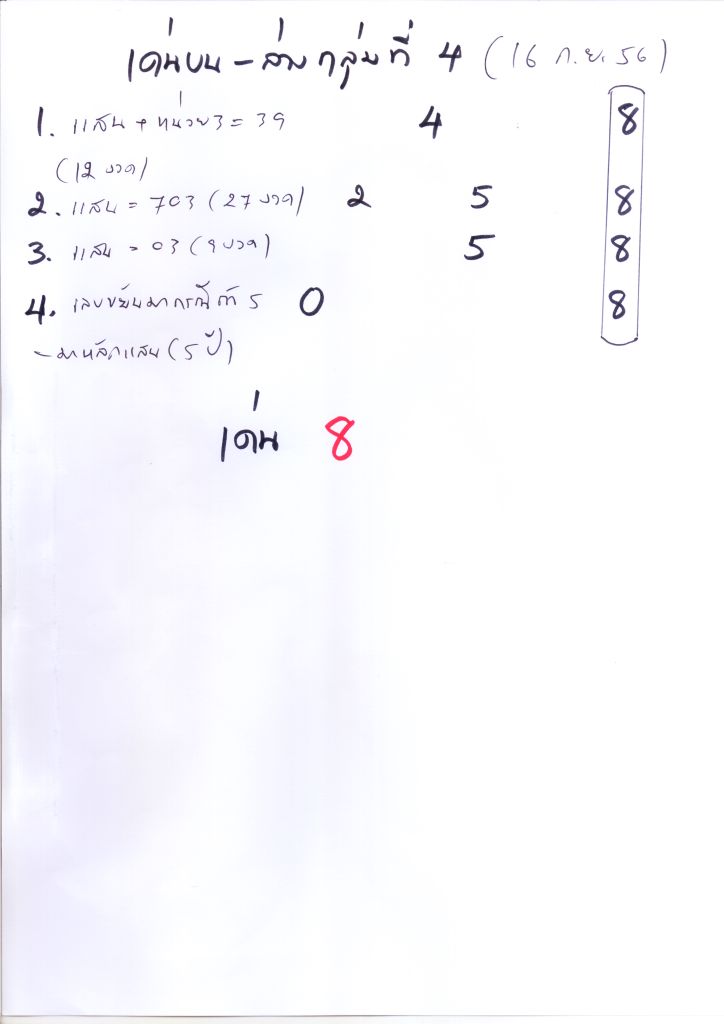 เด่นบน - ล่าง กลุ่มที่ 4 (16 ก.ย. 56)
1. แสน + หน่วย3 = 39 4 8
(12 งวด)
2. แสน = 703 (27 งวด) 2 5 8
3. แสน = 03 (9 งวด) 5 8
4. เลขขยันมากรณีที่ 5 0 8
- มาหลักแสน (5 ปี)
เด่น 8